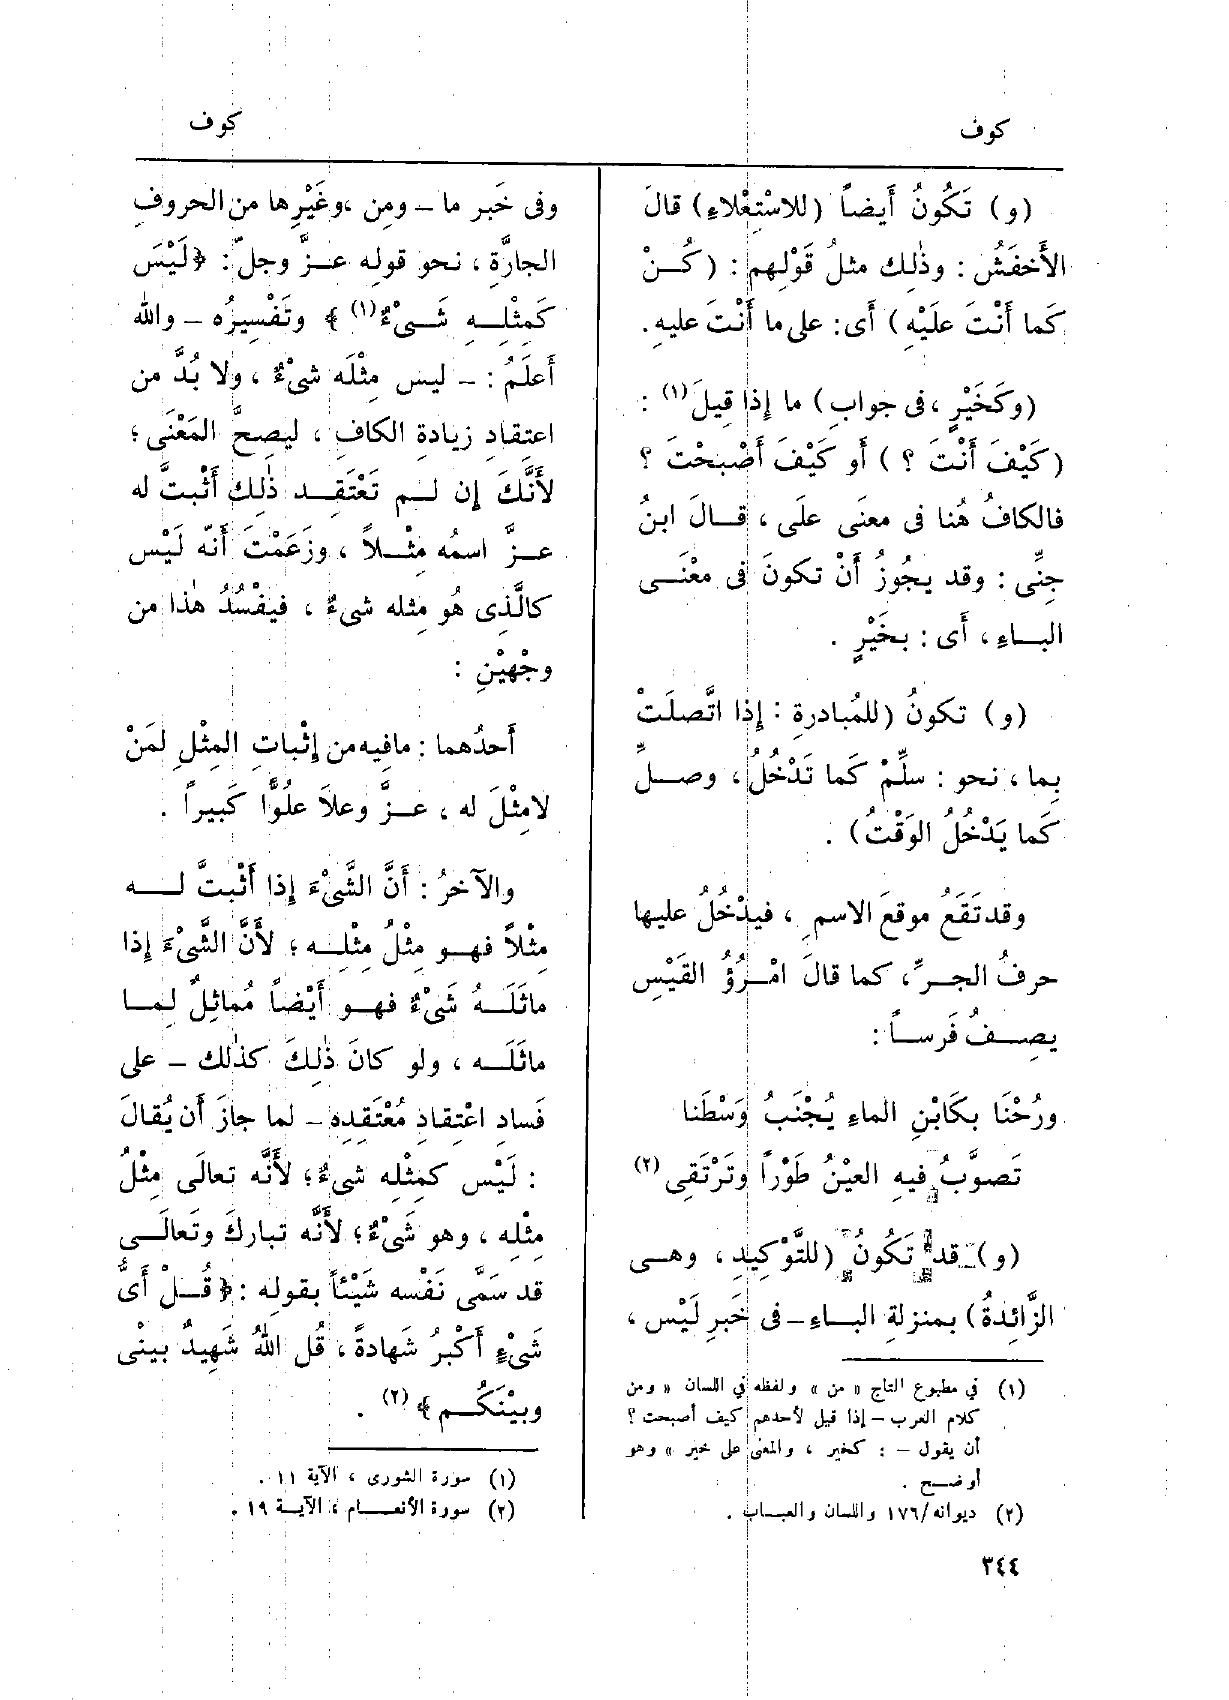 كوف
كوف
(و) تَكُونُ أَيضاً (للاسْتِعْلاءِ) قالَ
الأَخفَشُ : وذٰلِك مثلُ قَوْلِهم : (كُــنْ
كَما أَنْتَ علَيْهِ) أَى: على ما أَنْتَ عليهِ.
(وكَخَيْرٍ ، فى جوابِ) ما إِذا قِيلَ(١) :
(كَيْفَ أَنْتَ ؟) أَو كَيْفَ أَصْبحْتَ ؟
فالكافُ هُنا فى معنَى علَى ، قــالَ ابنُ
جِنِّى : وقد يجُوزُ أَنْ تكونَ فى معْنَــى
البــاءِ ، أَى : بخَيْرٍ .
(و) تكونُ (للمُبادرةِ : إِذا اتَّصلَتْ
بِما ، نحو : سلِّمْ كَما تَدْخُلُ ، وصــلِّ
كَما يَدْخُلُ الوَقْتُ) .
وقد تَقَعُ موقعَ الاسمِ ، فيدْخُلُ عليها
حرفُ الجــرِّ ، كما قالَ امْــرُؤُ القَيْسِ
يصِــفُ فَرســاً :
ورُحْنَا بكَابْنِ الماءِ يُجْنَبُ وَسْطَنا
تَصوَّبُ فيه العيْنُ طَوْراً وتَرْتَقِى (٢)
(و) قد تَكُونُ (للتَّوْكِيدِ ، وهــى
الزَّائِدةُ) بمنزلةِ البــاءِ – فى خَبرِ لَيْس ،
(١) في مطبوع التاج « من » ولفظه في اللسان « ومن
كلام العرب – إذا قيل لأحدهم كيف أصبحت ؟
أن يقول – : كخير ، والمعنى على خير » وهو
أوضــح .
(٢) ديوانه / ١٧٦ واللسان والعبــاب .
٣٤٤
وفى خَبر ما – ومِن ، وغَيْرِها من الحروفِ
الجارَّةِ ، نحو قوله عــزَّ وجلّ : ﴿ لَيْسَ
كَمثلِــهِ شَــىْءٌ(١) ﴾ وتَفْسِيرُه – والله
أَعلَمُ : – ليس مِثْلَه شىْءٌ ، ولا بُدَّ من
اعتقادِ زيادةِ الكافِ ، ليصِحَّ المَعْنَى ؛
لأَنَّكَ إِن لــم تَعْتَقِــد ذٰلِك أَثْبتَّ له
عــزَّ اسمُه مِثْــلاً ، وزَعَمْتَ أَنّه لَيْس
كالَّذِى هُو مِثله شىءٌ ، فيفْسُدُ هٰذا من
وجْهيْنِ :
أَحدُهما : مافِيه من إِثْباتِ المِثْلِ لمَنْ
لامِثْلَ له ، عــزَّ وعلاَ علُوًّا كَبيراً .
والآخرُ : أَنَّ الشَّىْءَ إِذا أَثْبتَّ لــه
مثْلاً فهــو مِثْلُ مِثْلِــه ؛ لأَنَّ الشَّىْءَ إِذا
ماثَلَــهُ شَىْءٌ فهــو أَيْضاً مُماثِلٌ لِمــا
ماثَلَــه ، ولو كانَ ذٰلِكَ كذٰلك – على
فَسادِ اعْتِقادِ مُعْتَقِدِه – لما جازَ أَن يُقالَ
: لَيْس كمِثْلِه شىءٌ ؛ لأَنَّه تعالَى مِثْلُ
مِثْلِه ، وهو شَىْءٌ ؛ لأَنَّه تبارك وتَعالَــى
قد سَمَّى نَفْسه شَيْئاً بقولِه : ﴿ قُــلْ أَىُّ
شَىْءٍ أَكْبرُ شَهادةً ، قُل اللهُ شَهِيدٌ بينِى
وبيْنَكُــم ﴾ (٢) .
(١) سورة الشورى ، الآية ١١ .
(٢) سورة الأنعــام ، الآيــة ١٩ .